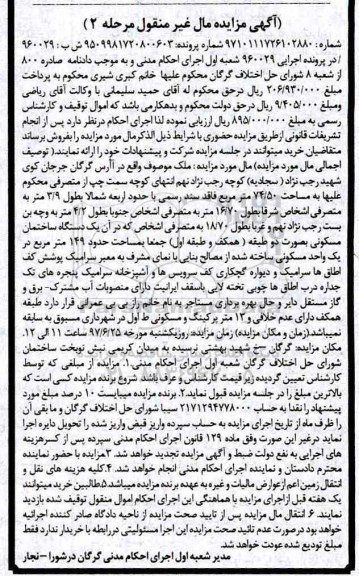 (آگهی مزایده مال غیر منقول مرحله ۲)
شماره : ۹۷۱۰۱۱۱۷۲۶۱۰۲۸۸۰ شماره پرونده: ۹۵۰۹۹۸۱۷۲۰۸۰۰۶۰۳ ش ب : ۹۶۰۰۲۹
/ در پرونده اجرایی ۹۶۰۰۲۹ شعبه اول اجرای احکام مدنی و به موجب دادنامه صادره ۸۰۰
از شعبه ۸ شورای حل اختلاف گرگان محکوم علیها خانم کبری شیری محکوم به پرداخت
مبلغ ۲۰۶/۹۳۰/۰۰۰ ریال درحق محکوم له آقای حمید سلیمانی با وکالت آقای ریاضی
ومبلغ ۹/۴۰۵/۰۰۰ ریال درحق دولت محکوم و بدهکارمی باشد که اموال توقیف و کارشناس
رسمی به مبلغ ۸۹۵/۰۰۰/۰۰۰ ریال ارزیابی نموده لذا اجرای احکام درنظر دارد پس از انجام
تشریفات قانونی ازطریق مزایده حضوری با شرایط ذیل الذکرمال مورد مزایده را بفروش برساند
متقاضیان خرید میتوانند در جلسه مزایده شرکت و پیشنهادات خود را ارائه نمایند.( توصیف
اجمالی مال مورد مزایده) مال مورد مزایده : ملک موصوف واقع در آدرس گرگان جرجان کوی
شهید رجب نژاد ( سجادیه) کوچه رجب نژاد نهم انتهای کوچه سمت چپ از متصرفی محکوم
علیها به مساحت ۷۴/۵۰ متر مربع فاقد سند رسمی با حدود اربعه شمالا بطول ۳/۹ متر به
متصرفی اشخاص شرقا بطول ۱۶/۷۰ متر به متصرفی اشخاص جنوبا بطول ۴/۲ متر به وجه بن
بست رجب نژاد نهم و غربا بطول ۱۸/۷۰ به متصرفی اشخاص که در آن یک دستگاه ساختمان
مسکونی بصورت دو طبقه ( همکف و طبقه اول) جمعا بمساحت حدود ۱۴۹ متر مربع در
یک واحد مسکونی ساخته شده از مصالح بنایی با نمای مشرف به معبر سرامیک پوشش کف
اطاق ها سرامیک و دیواره گچکاری کف سرویس ها و آشپزخانه سرامیک پنجره های تک
جداره درب اطاق ها چوبی تخته لایی باسقف ایرانیت دارای منصوبات آب مشترک- برق و
گاز مستقل دایر و حال بهره برداری مستاجر به نام خانم راز پی پی عمرانی قرار دارد طبقه
همکف دارای عدم خلافی و ۱۲ متر پرکینگ و مسکونی ط اول در شهرداری مسبوق به سابقه
نمیباشد.(زمان و مکان مزایده) زمان مزایده: روزیکشنبه مورخه ۹۷/۶/۲۵ ساعت ۱۱ الی ۱۲.
مکان مزایده: گرگان – خ شهید بهشتی نرسیده به میدان کریمی نبش نوبخت ساختمان
شورای حل اختلاف گرگان شعبه اول اجرای احکام مدنی ۱. مزایده از مبلغی که توسط
کارشناس تعیین گردیده زیر قیمت کارشناس و عرف باشد شروع برنده مزایده کسی است که
بالاترین مبلغ را در جلسه مزایده قبول نماید.۲. برنده مزایده میبایست ۱۰ درصد مبلغ مورد
پیشنهاد را نقدا به حساب ۲۱۷۱۲۹۴۷۷۸۰۰۰ سیبا شورای حل اختلاف گرگان و مابقی آن
را ظرف ماه از تاریخ اجرای مزایده به حساب سپرده واریز قبض واریز شده را تحویل دایره اجرا
نماید درغیر این صورت وفق ماده ۱۲۹ قانون اجرای احکام مدنی سپرده پس از کسرهزینه
های اجرایی به نفع دولت ضبط و آگهی مزایده تجدید خواهد شد. ۳.مزایده با حضور نماینده
محترم دادستان و نماینده اجرای احکام مدنی انجام خواهد شد. ۴.کلیه هزینه های نقل و
انتقال زمین اعم از عوارض مالیات و غیره به عهده برنده مزایده میباشد.۵.طالبین خرید میتوانند
یک هفته قبل ازاجرای مزایده با هماهنگی این اجرای احکام اموال منقول توقیف شده بازدید
نمایند. ۶. انتقال مال مزایده پس از تایید صحت مزایده از ناحیه دادگاه صادر کننده اجرائیه
خواهد بود درصورت عدم تائید صحت مزایده این اجرا مسئولیتی دررابطه با خریدار ندارد فقط
مبلغ تودیع شده عودت خواهد شد.
مدیر شعبه اول اجرای احکام مدنی گرگان درشورا – نجار